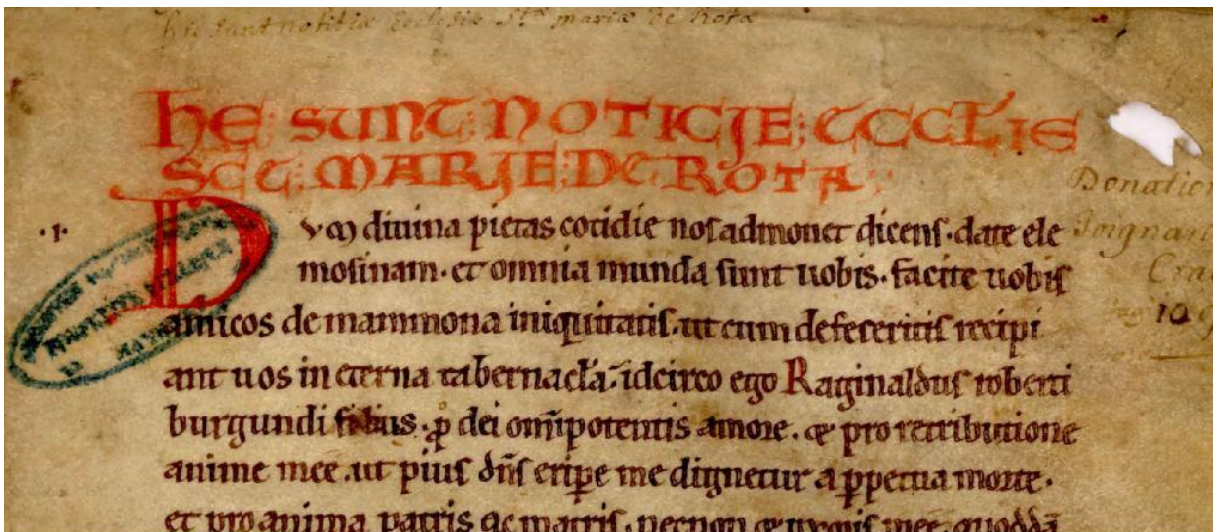 hic sunt notitiæ Ecclesiæ Stæ mariæ de Rota
HE : SUNT : NOTICIE : ECCL'IE
SCE : MARIE : DE : ROTA
.I.
DVM diuina pietas cotidie nos admonet dicens . date ele
mosinam . et omnia munda sunt uobis . facite uobis
amicos de mammona iniquitatis . ut cum defeceritis recipi
ant uos in eterna tabernacl'a . idcirco ego Raginaldus roberti
burgundi filius . ꝑ dei om̅ipotentis amore . & pro retributione
anime mee . ut pius dn̅s eripe me dignetur a ꝑpetua morte .
et pro anima patris & matris . necnon & uxoris mee . quodda̅
Donation